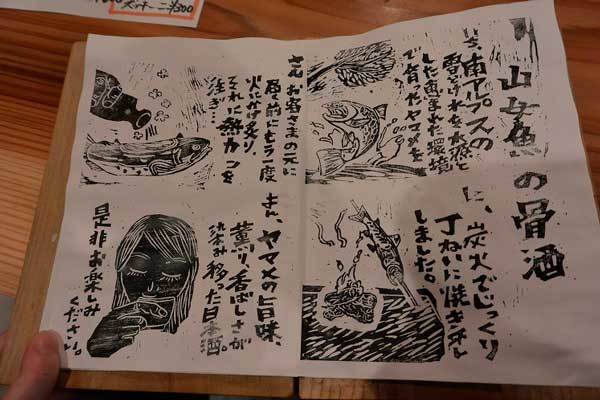 山女魚の骨酒
いち、南アルプスの
雪どけ水を水源と
した恵まれた環境
で育ったヤマメを
に、炭火でじっくり
丁ねいに焼き干し
しました。
さん、お客さまの元に
届く前にもう一度
火にかけ炙り、
それに熱カンを
注ぎ…
よん、ヤマメの旨味、
薫り、香ばしさが
染み移った日本酒。
是非お楽しみ
ください。